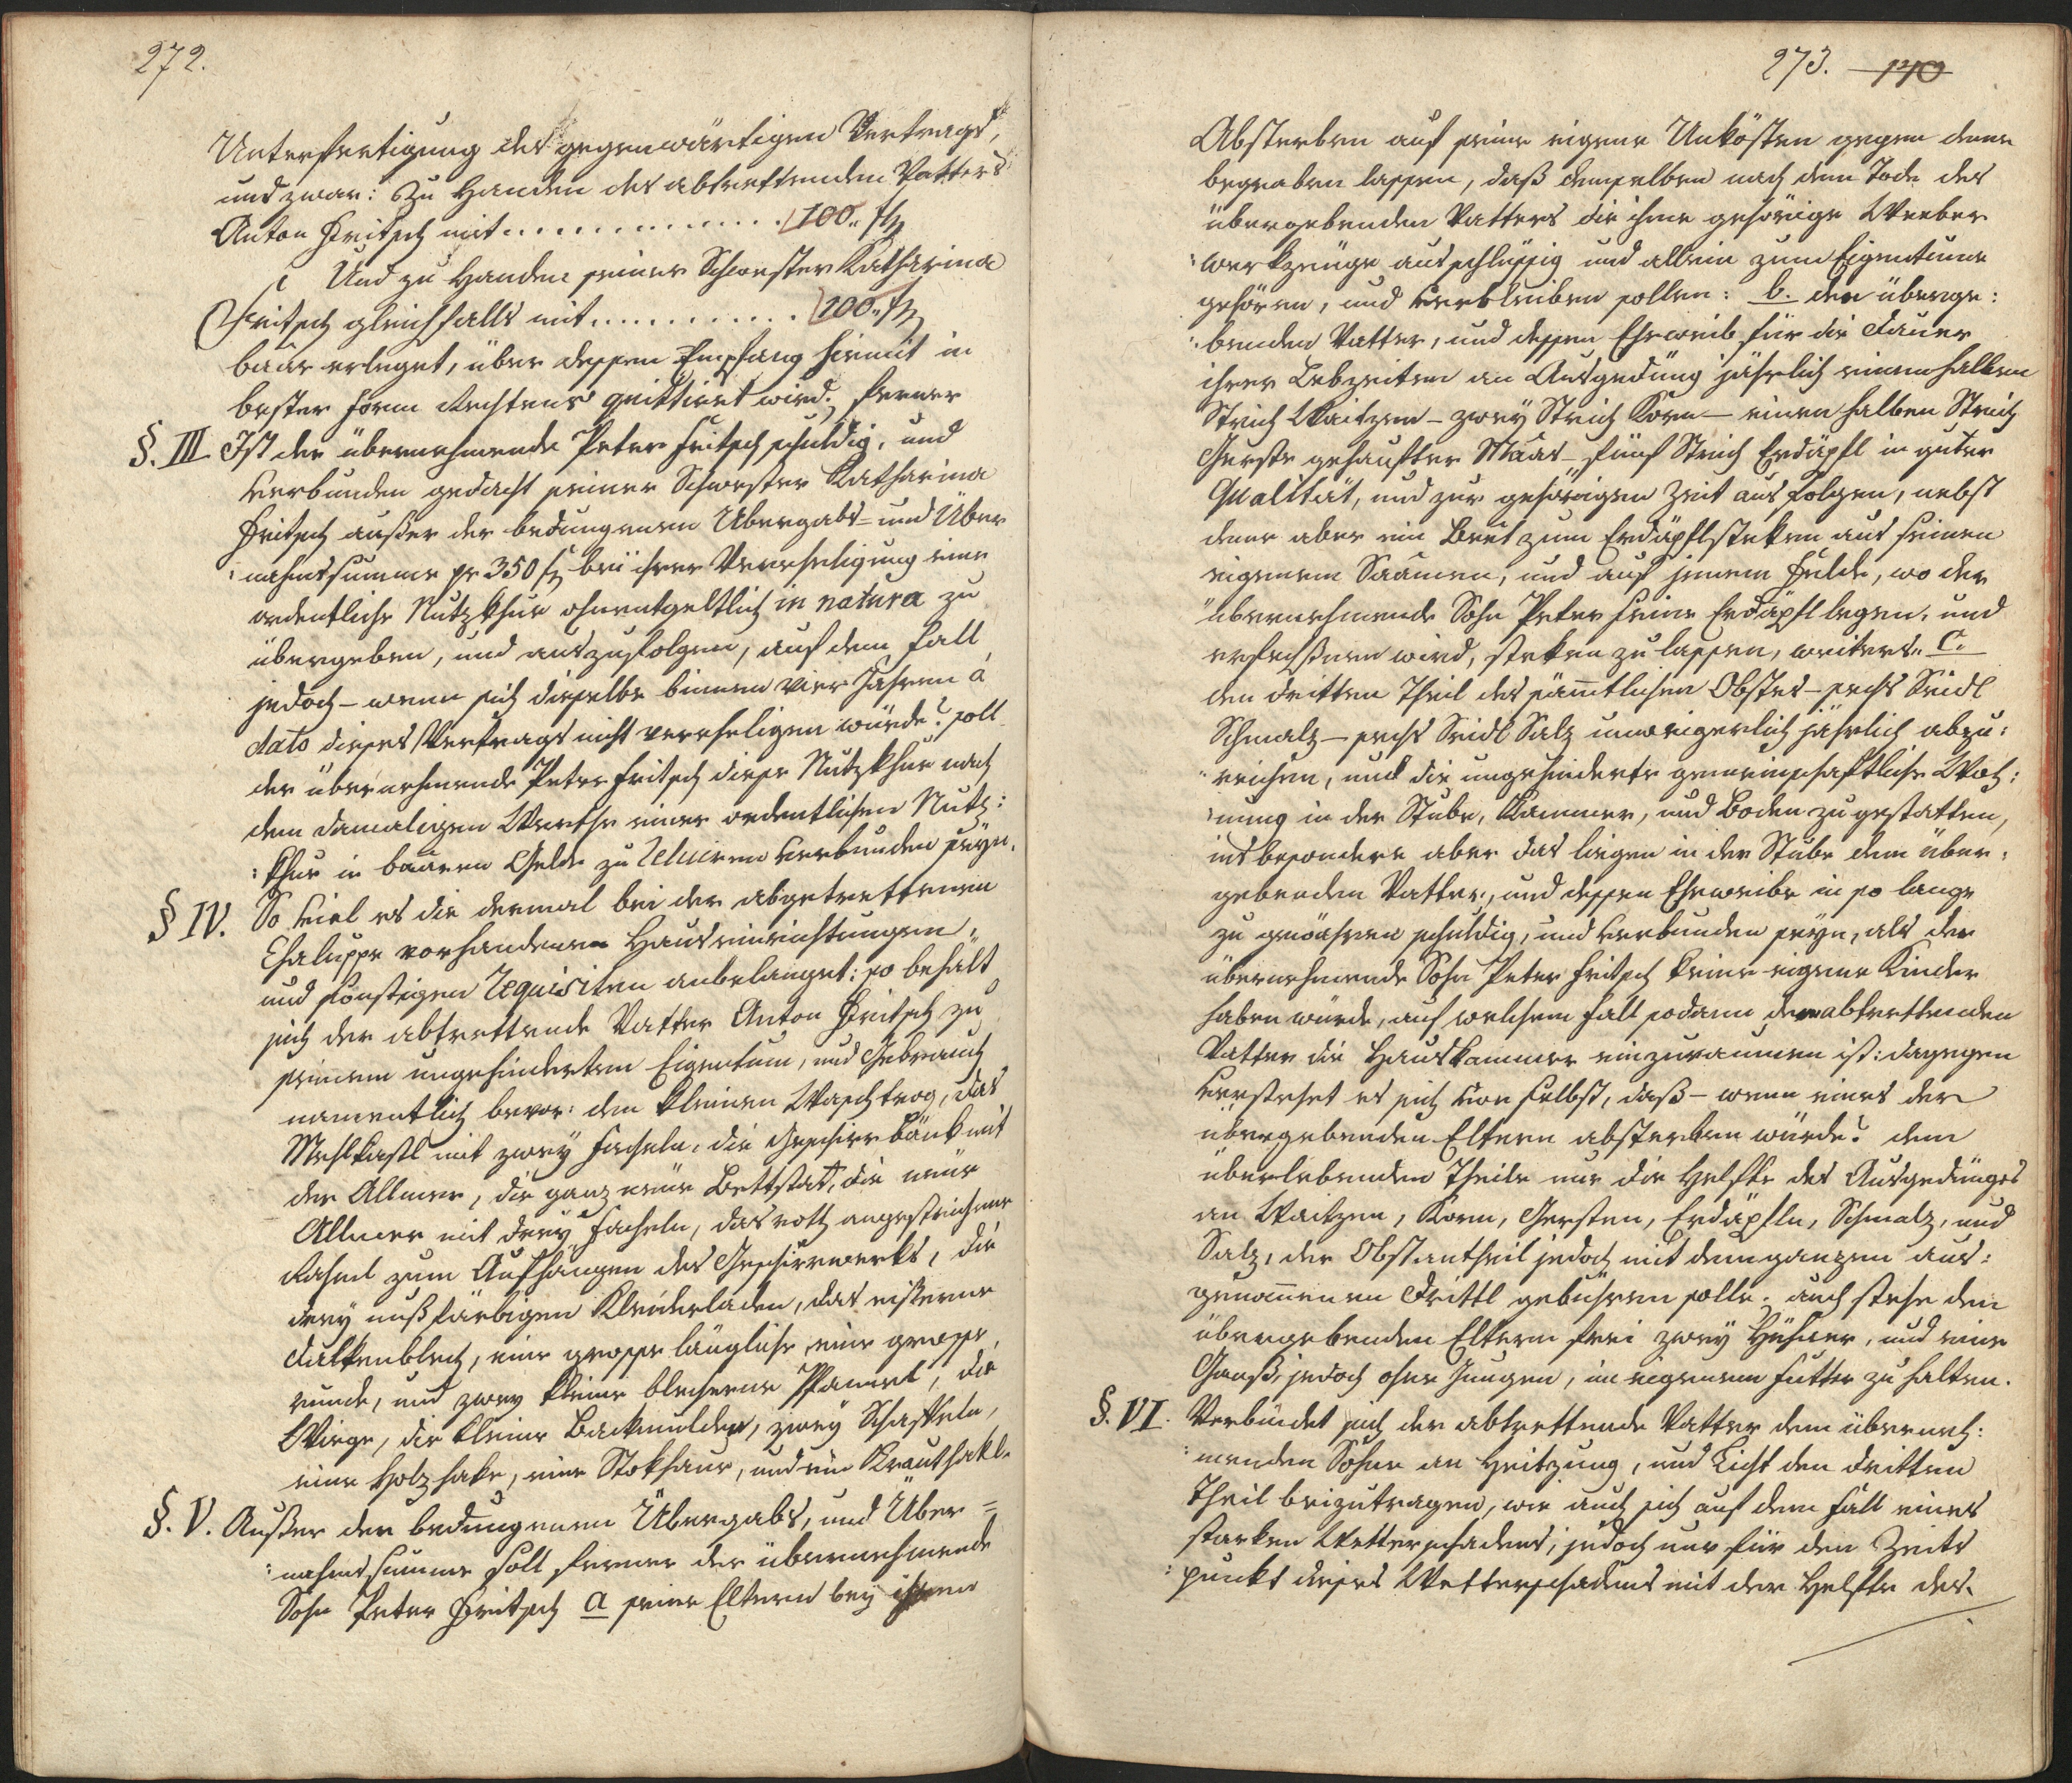 272.
Unterfertigung des gegenwärtigen Vertrags,
und zwar: Zu Handen des abtrettenden Vatters
Anton Fritsch mit . . . . . . . . . . . . . . 100„ f
Und zu Handen seiner Schwester Katharina
Fritsch gleichfalls mit . . . . . . . . . . . . 100„ f
baar erleget, über dessen Empfang hiemit in
bester Form Rechtens quittiret wird; ferner
§. III Ist der übernehmende Peter Fritsch schuldig, und
verbunden gedacht seiner Schwester Katharina
Fritsch außer der bedungenen Übergabs= und Über
:nahmssumme pr 350 f bei ihrer Verehligung eine
ordentliche Nutzkhue ohnentgeltlich in natura zu
übergeben, und auszufolgen, auf dem Fall
jedoch – wenn sich dieselbe binnen vier Jahren à
dato dieses Vertrags nicht verehligen würde? soll
der übernehmende Peter Fritsch diese Nutzkhue nach
dem damaligen Werthe einer ordentlichen Nutz:
:khue in baaren Gelde zu reluiren verbunden seyn.
§ IV. So viel es die dermal bei der abgetrettenen
Chaluppe vorhandenen Hauseinrichtungen,
und sonstigen requisiten anbelanget: so behält
sich der abtrettende Vatter Anton Fritsch zu
seinem ungehinderten Eigentum, und Gebrauch
namentlich bevor: den kleinen Waschtrog, das
Mehlkastl mit zwey Facheln, die Geschirr bänk mit
der Allmer, die ganz neue Bettstat, die neue
Allmer mit drey Facheln, das roth angestrichene
Rahml zum Aufhängen des Geschirrwerks, die
drey nußfärbigen Kleiderladen, das eiserne
Dalkenblech, eine grosse längliche, eine grosse,
runde, und zwey kleine blecherne Pfannel, die
Wiege, die kleine Backmulder, zwey Schaffeln,
eine Holzhake, eine Stokhaue, und ein Krauthakl.
§. V. Außer der bedungenen Übergabs, und Über=
:nahmssumme soll ferner der übernehmende
Sohn Peter Fritsch a seine Eltern bey ihrem
273. 170
Absterben auf seine eigene Unkösten gegen deme
begraben lassen, daß demselben nach dem Tode des
übergebenden Vatters die ihme gehörige Weber
:werkzeuge ausschlüssig und allein zum Eigentume
gehören, und verbleiben sollen: b. den überge:
:benden Vatter, und dessen Eheweib für die Dauer
ihrer Lebzeiten an Ausgedüng jährlich einen halben
Strich Waitzen – zwey Strich Korn – einen halben Strich
Gerste gehaufter Maas – fünf Strich Erdäpfl in guter
Qualität, und zur gehörigen Zeit aus folgen, nebst
deme aber ein Beet zum Erdäpflsteken aus seinen
eigenem Saamen, und auf jenem Felde, wo der
übernehmende Sohn Peter seine Erdäpfl legen, und
erfechßnen wird, steken zu lassen, weiters„ C.
den dritten Theil des sämtlichen Obstes – sechs Seidl
Schmalz – sechs Seidl Salz unweigerlich jährlich abzu:
:reichen, und die ungehinderte gemeinschaftliche Woh:
:nung in der Stube, Kammer, und Boden zu gestatten,
insbesondere aber das liegen in der Stube dem über:
gebenden Vatter, und dessen Eheweibe in so lange
zu gewähren schuldig, und verbunden seyn, als der
übernehmende Sohn Peter Fritsch keine eigene Kinder
haben würde, auf welchem Fall sodann dem abtrettenden
Vatter die Hauskammer einzuraumen ist: dagegen
verstehet es sich von selbst, daß – wenn eines der
übergebenden Eltern absterben würde? dem
überlebenden Theile nur die Helfte des Ausgedünges
an Waitzen, Korn, Gersten, Erdäpfln, Schmalz, und
Salz, der Obstantheil jedoch mit dem ganzen aus:
genommenen Drittl gebühren solle. auch stehe den
übergebenden Eltern frei zwey Hühner, und eine
Ganß, jedoch ohne Jungen, im eigenem Futter zu halten.
§. VI. Verbindet sich der abtrettende Vatter dem überneh:
:menden Sohne an Heitzung, und Licht den dritten
Theil beizutragen, wie auch sich auf dem Fall eines
starken Wetterschadens, jedoch nur für den Zeits
:punkt dieses Wetterschadens mit der Helfte des